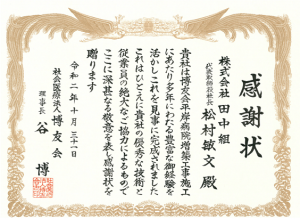 感謝状
株式会社 田中組
代表取締役社長 松村敏文 殿
貴社は博友会平岸病院増築工事施工
にあたり多年にわたる豊富な御経験を
活かしこれを見事に完成されました
これはひとえに貴社の優秀な技術と
従業員の絶大なご協力によるもので
ここに深甚なる敬意を表し感謝状を
贈ります
令和二年十月三十一日
社会医療法人 博友会
理事長 谷 博